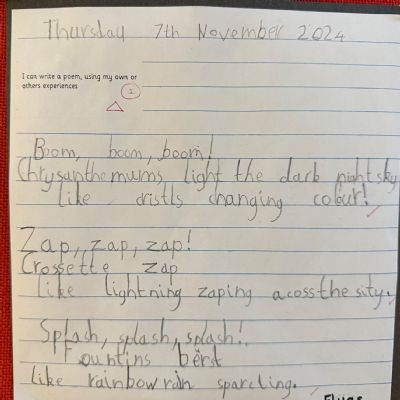 Thursday 7th November 2024
I can write a poem, using my own or
others experiences
Boom, boom, boom!
Chrysanthemums light the dark night sky
like dristls changing colour!
Zap, zap, zap!
Crossette zap
like lightning zaping acoss the sity.
Splash, splash, splash!
Fountins berst
like rainbow rain sparcling.